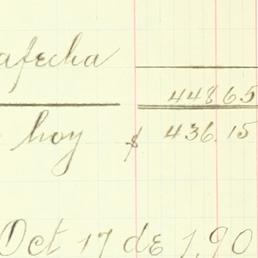 afecha
448 65
hoy $ 436.15
Oct 17 de 190